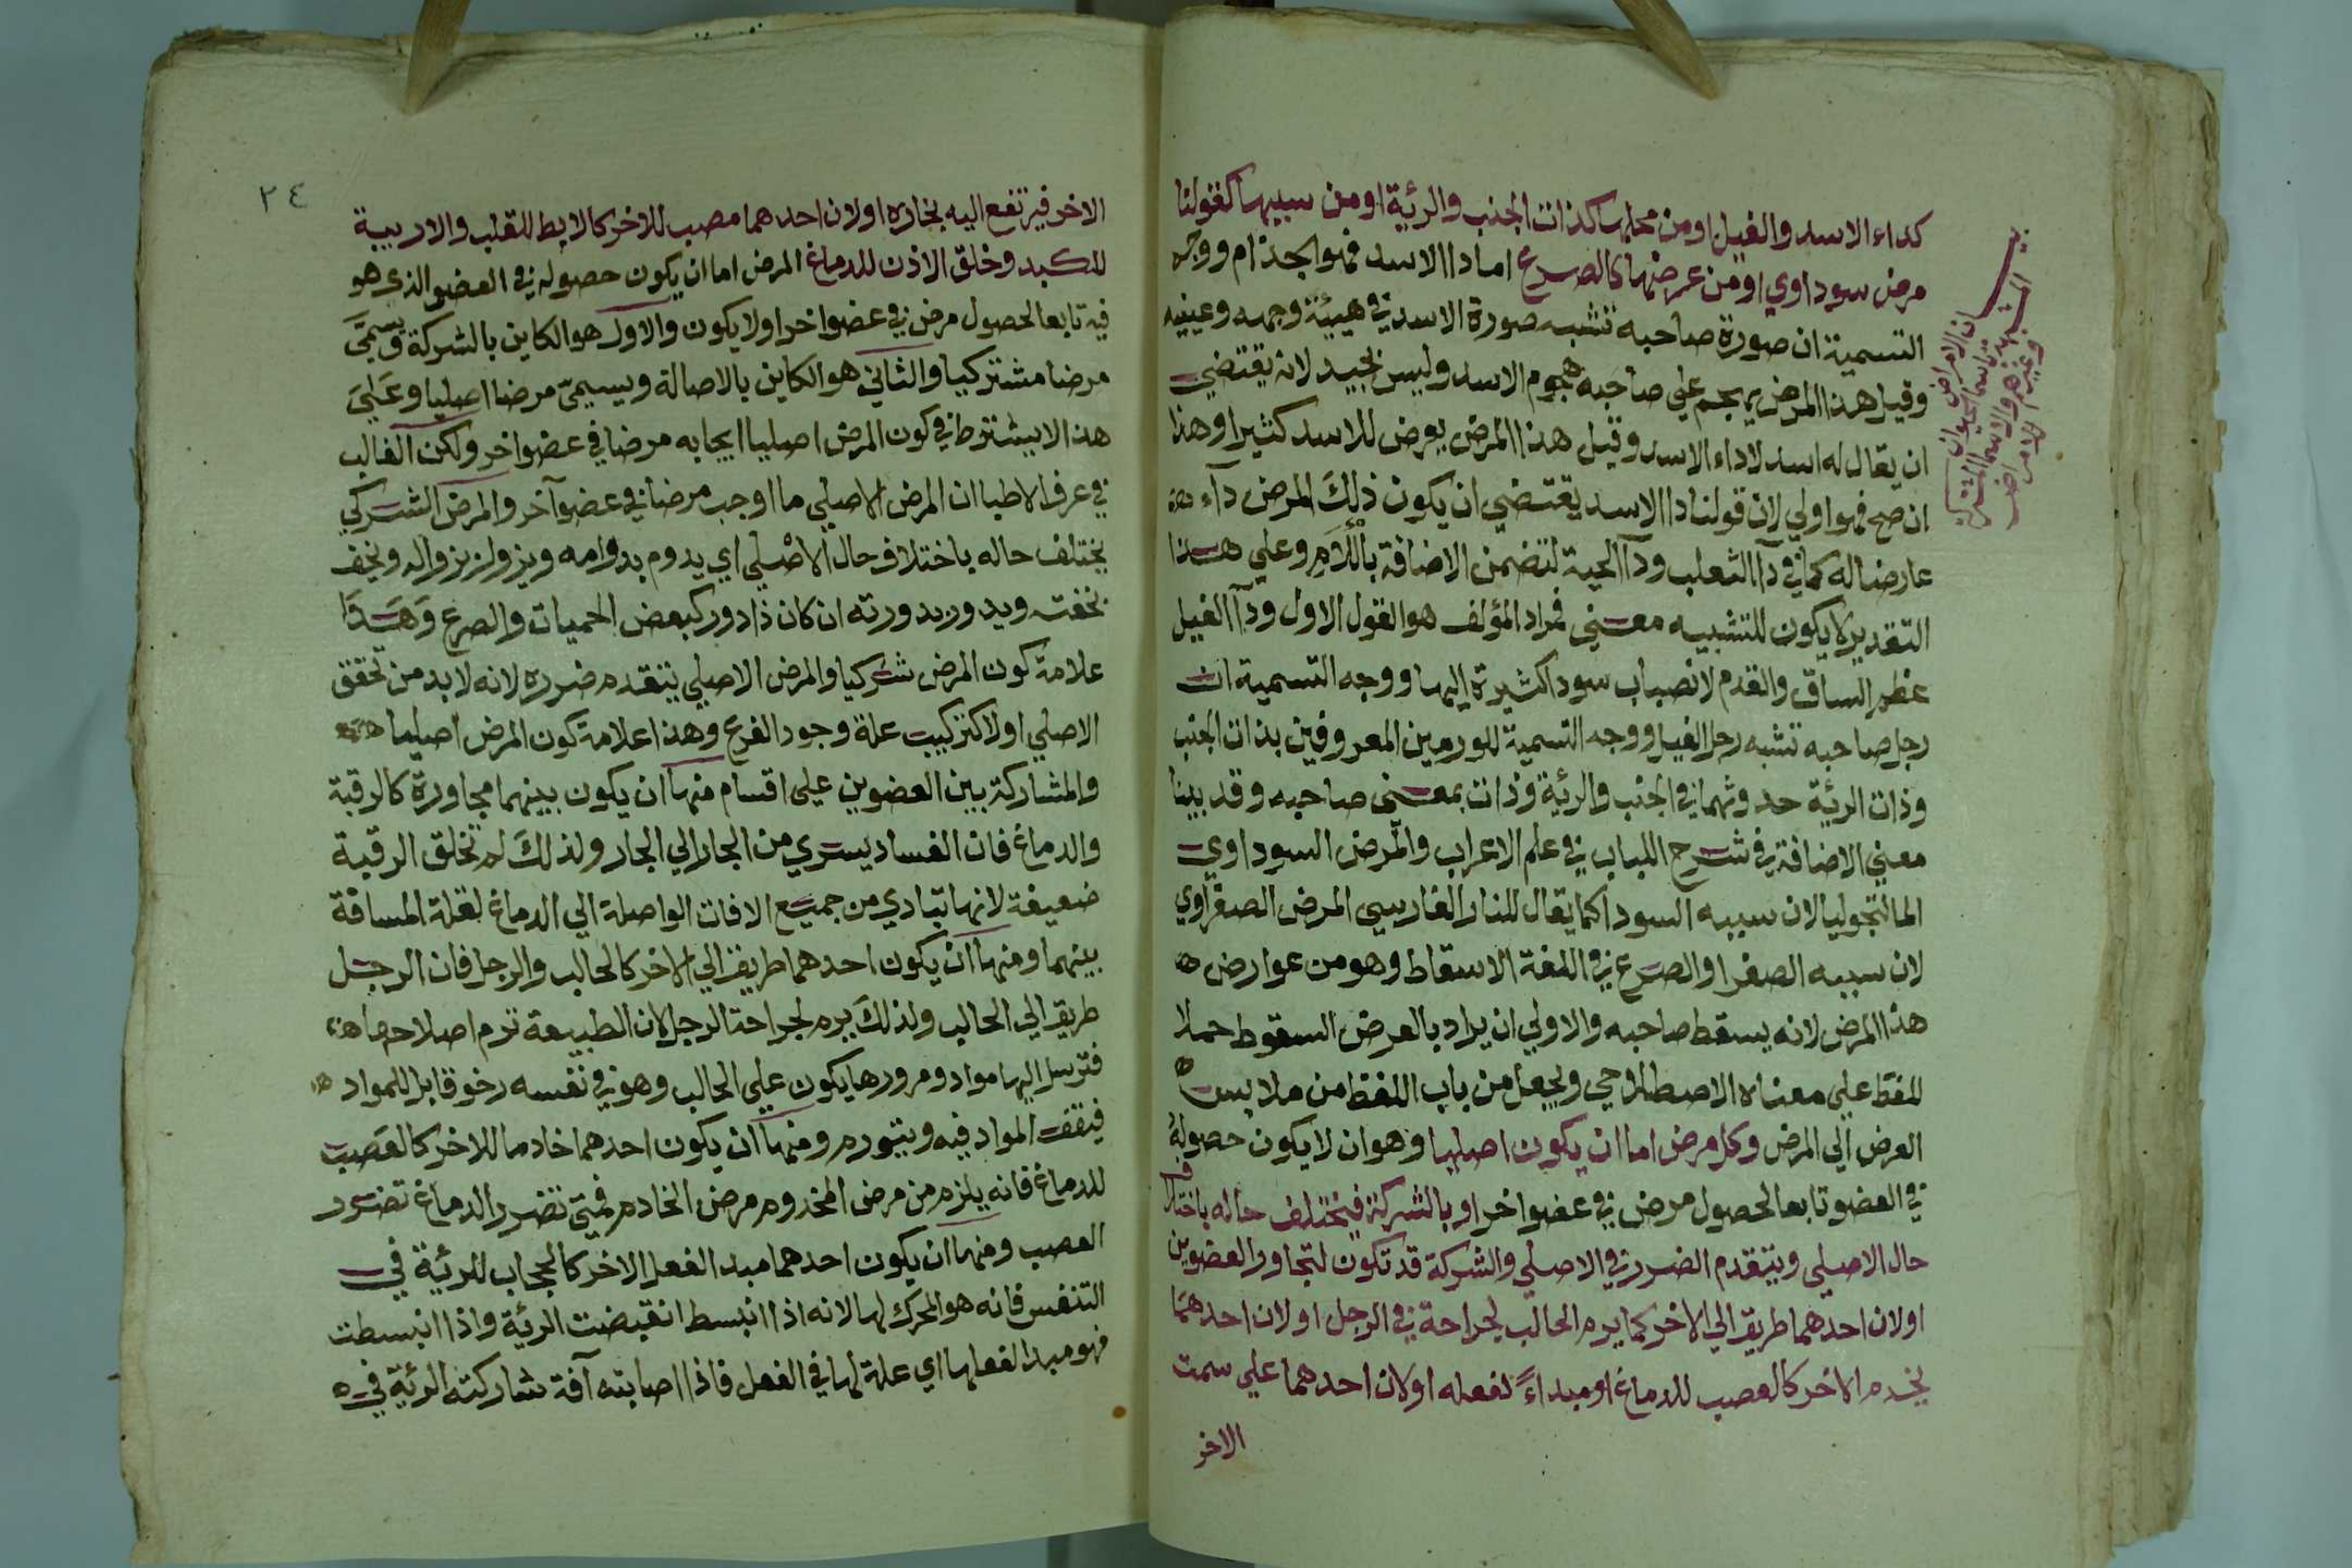 كداء الاسد والفيل او من محلها كذات الجنب والرئة او من سببها كقولنا
مرض سوداوي او من عرضها كالصرع اما دا الاسد فهو الجذام ووجه
التسمية ان صورة صاحبه تشبه صورة الاسد في هيئة وجهه وعينيه
وقيل هذا المرض يهجم علي صاحبه هجوم الاسد وليس بجيد لانه يقتضي
ان يقال له اسد لا داء الاسد وقيل هذا المرض يعرض للاسد كثيرا وهذا
ان صح فهو اولي لان قولنا دا الاسد يقتضي ان يكون ذلك المرض دآء
عارضا له كما في دآ الثعلب ودآ الحية لتضمن الاضافة باللام وعلي هذا
التقدير لا يكون للتشبيه معني فمراد المؤلف هو القول الاول ودآ الفيل
عظم الساق والقدم لانصباب سودا كثيرة اليها ووجه التسمية ان
رجل صاحبه تشبه رجل الفيل ووجه التسمية للورمين المعروفين بذات الجنب
وذات الرئة حدوثهما في الجنب والرئة وذات بمعني صاحبه وقد بينا
معني الاضافة في شرح اللباب في علم الاعراب والمرض السوداوي
المالنخوليا لان سببه السودا كما يقال للنار الفارسي المرض الصفراوي
لان سببه الصفرا والصرع في اللغة الاسقاط وهو من عوارض
هذا المرض لانه يسقط صاحبه والاولي ان يراد بالعرض السقوط حملا
للفظ علي معناه الاصطلاحي ويجعل من باب اللفظ من ملابس
العرض الي المرض وكل مرض اما ان يكون اصليا وهو ان لا يكون حصوله
في العضو تابعا لحصول مرض في عضو اخر او بالشركة فيختلف حاله باختلاف
حال الاصلي ويتقدم الضرر في الاصلي والشركة قد تكون لتجاور العضوين
او لان احدهما طريق الي الاخر كما يرم الحالب لجراحة في الرجل او لان احدهما
يخدم الاخر كالعصب للدماغ او مبداءً لفعله او لان احدهما علي سمت
الاخر
٢٤
الاخر فيرتفع اليه بخاره او لان احدهما مصب للاخر كالابط للقلب والاربية
للكبد وخلق الاذن للدماغ المرض اما ان يكون حصوله في العضو الذي هو
فيه تابعا لحصول مرض في عضو اخر او لا يكون والاول هو الكاين بالشركة ويسمّي
مرضا مشتركيا والثاني هو الكاين بالاصالة ويسيميّ مرضا اصليا وعَلي
هذا لا يشترط في كون المرض اصليا ايجابه مرضا في عضو اخر ولكن الغالب
في عرف الاطبا ان المرض الاصلي ما اوجب مرضا في عضو آخر والمرض الشركي
يختلف حاله باختلاف حال الاصلي اي يدوم بدوامه ويزول بزواله ويخف
بخفته ويدور بدورته ان كان ذا دور كبعض الحميات والصرع وَهَذَا
علامة كون المرض شركيا والمرض الاصلي يتقدم ضرره لانه لا بد من تحقق
الاصلي اولا كتركيب علة وجود الفرع وهذا علامة كون المرض اصليا
والمشاركة بين العضوين علي اقسام منها ان يكون بينهما مجاورة كالرقبة
والدماغ فان الفساد يسري من الجار الي الجار ولذلك لم تخلق الرقبة
ضعيفة لانها تبادي من جميع الافات الواصلة الي الدماغ لقلة المسافة
بينهما ومنها ان يكون احدهما طريق الي الاخر كالحالب والرجل فان الرجل
طريق الي الحالب ولذلك يرم لجراحة الرجل لان الطبيعة تروم اصلاحها
فترسل اليها مواد ومرورها يكون علي الحالب وهو في نفسه رخو قابل للمواد
فيقف المواد فيه ويتورم ومنها ان يكون احدهما خادما للاخر كالعَصب
للدماغ فانه يلزم من مرض المخدوم مرض الخادم فمتي تضرر الدماغ تضرر
العصب ومنها ان يكون احدهما مبدا لفعل الاخر كالحجاب للرئة في
التنفس فانه هو المحرك لها لانه اذا انبسط انقبضت الرئة واذا انبسطت
فهو مبدا لفعلها اي علة لها في الفعل فاذا اصابته آفة شاركته الرئة في